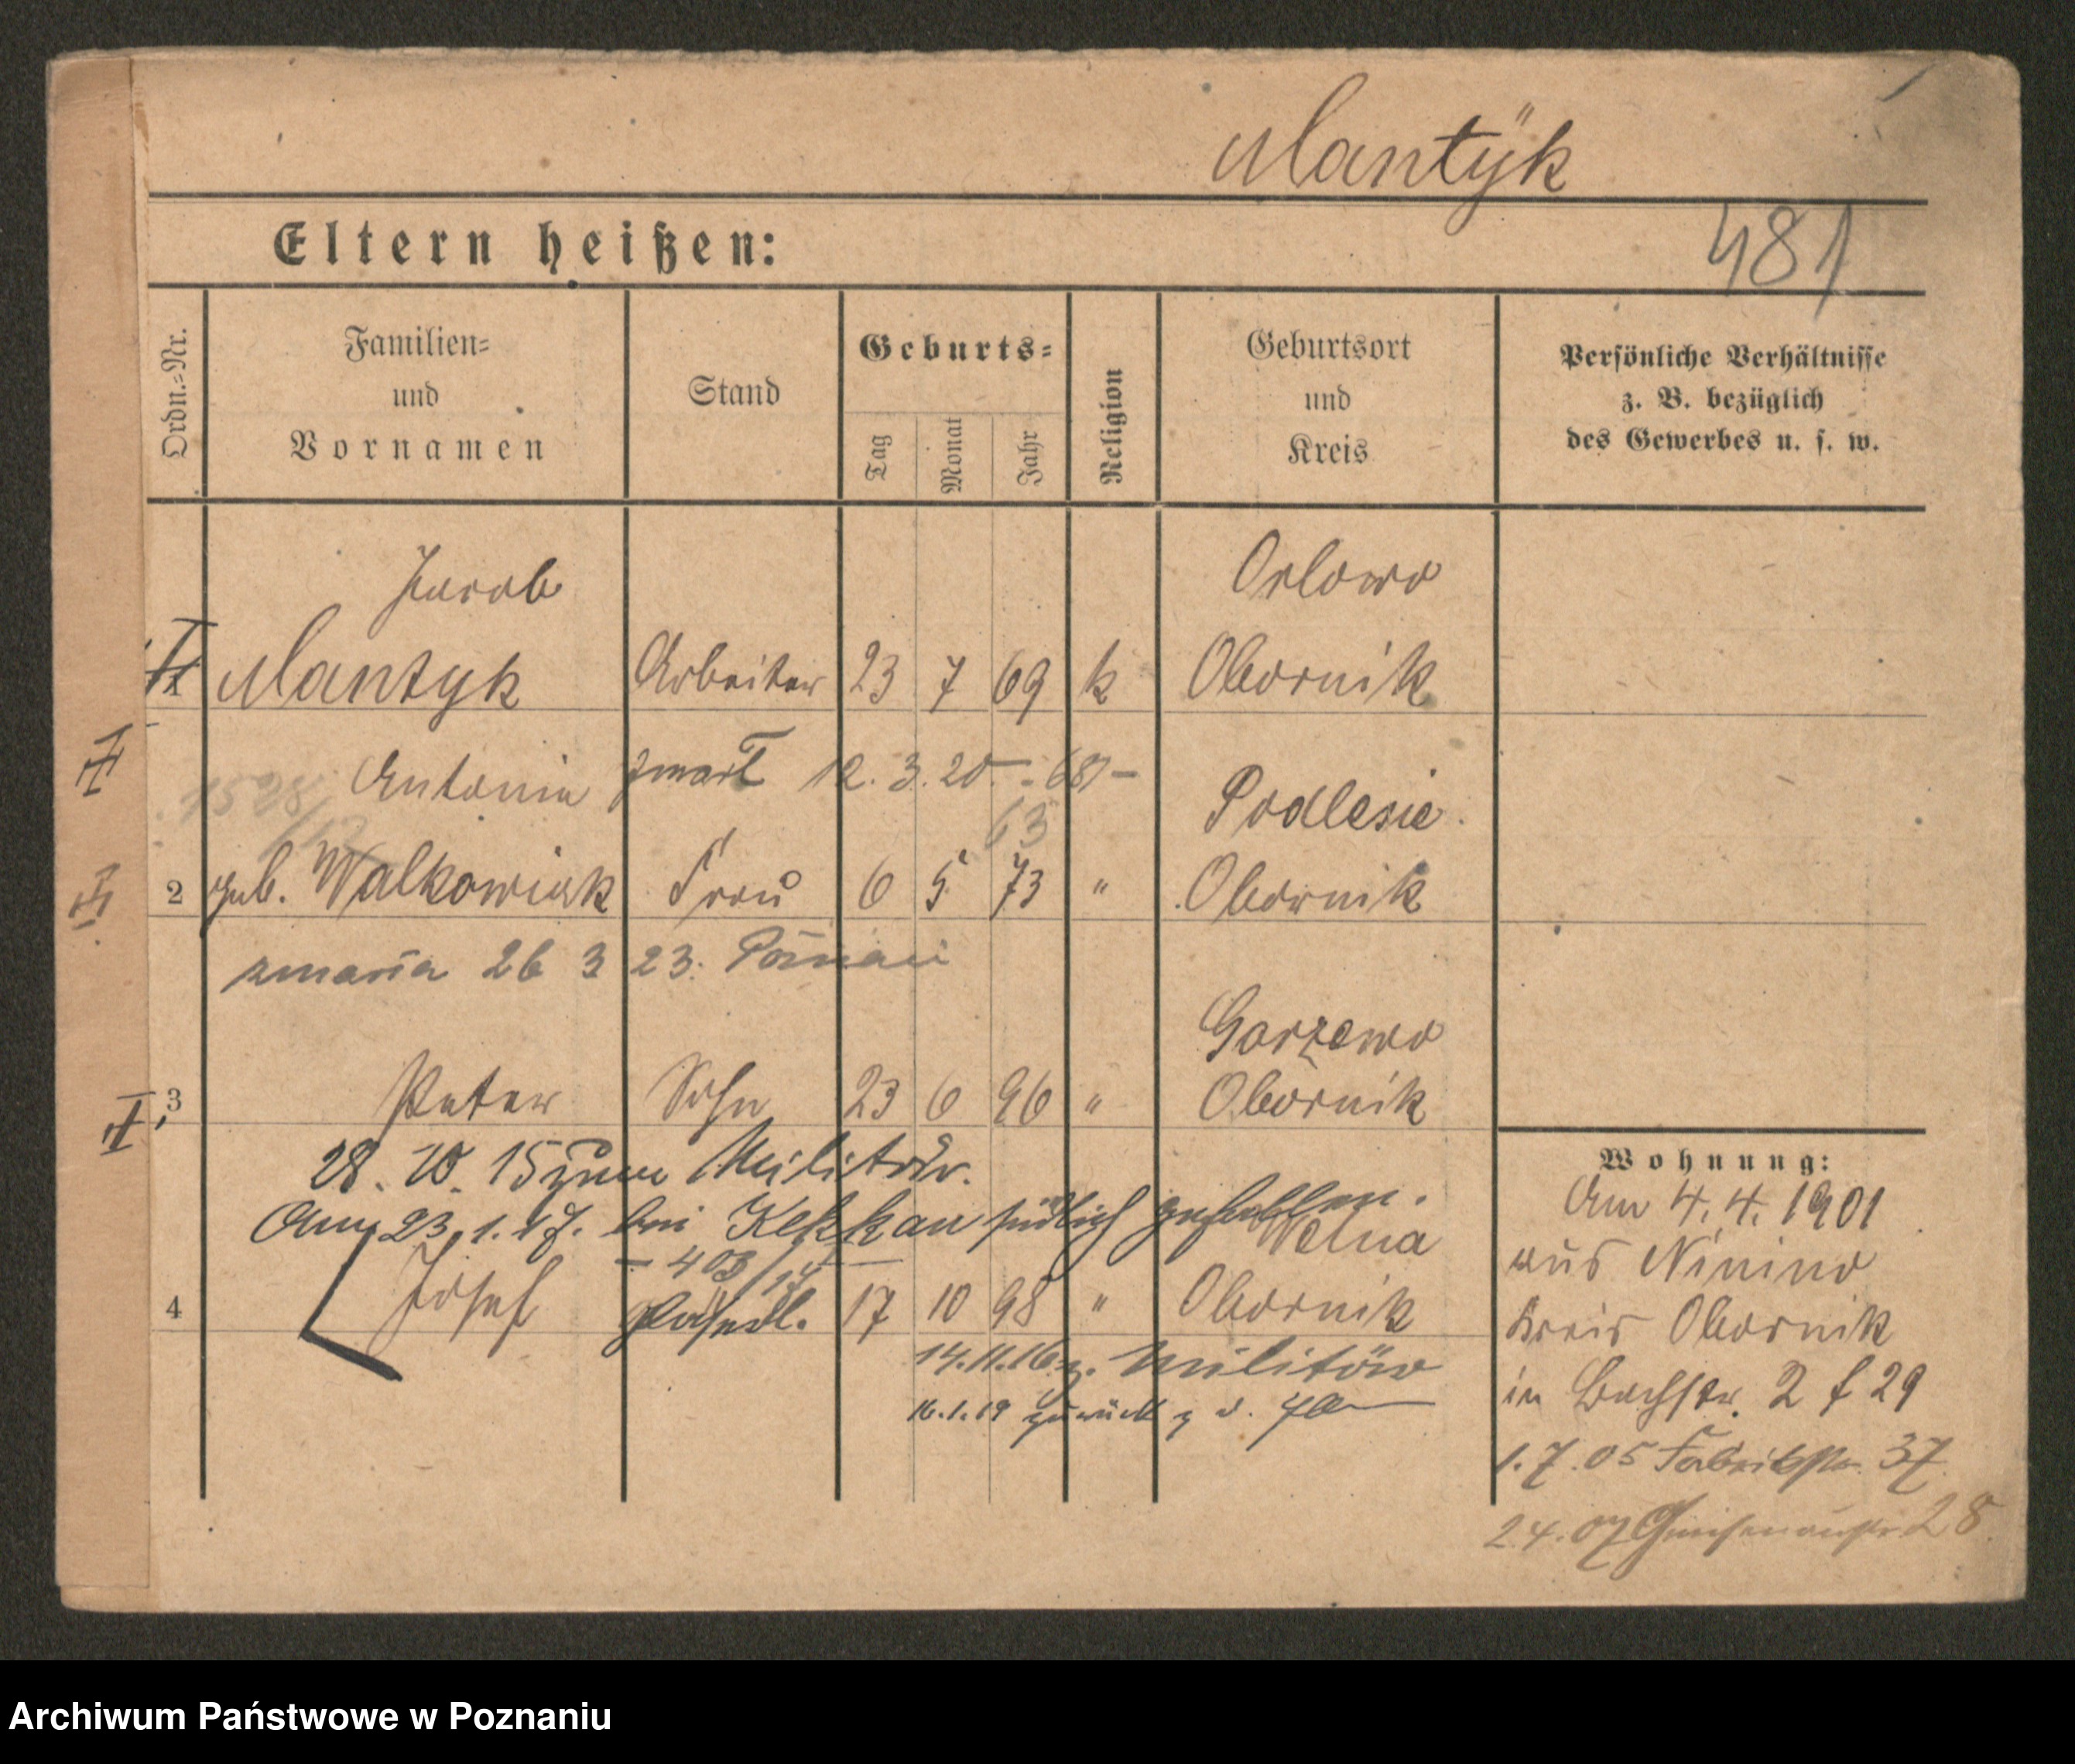 Mantÿk
Eltern heißen:
481
Ordn.=Nr.
Familien=
und
Vornamen
Stand
Geburts=
Tag
Monat
Jahr
Religion
Geburtsort
und
Kreis
Persönliche Verhältnisse
z. B. bezüglich
des Gewerbes u. s. w.
Jacob
Orlowo
1 Mantyk Arbeiter 23 7 69 k Obornik
Antonia zmarł 12. 3. 20 - 681 -
Podlesie
63
2 geb. Walkowiak Frau 6 5 73 " Obornik
zmarła 26 3 23. Poznań
Gorzewo
3 Peter Sohn 23 6 96 " Obornik
28. 10. 15 zum Militär.
Am 23.1.17. bei Kekkau südlich gefallen.
- 403/17 -
Welna
4 Josef 17 10 98 " Obornik
14.11.16 z. Militär
16.1.19 zurück
Wohnung:
Am 4. 4. 1901
aus Ninino
Kreis Obornik
in Bachstr. 2 f 29
1.7.05 Fabrikstr. 37
2.4.07 Gneisenaustr 28
Archiwum Państwowe w Poznaniu